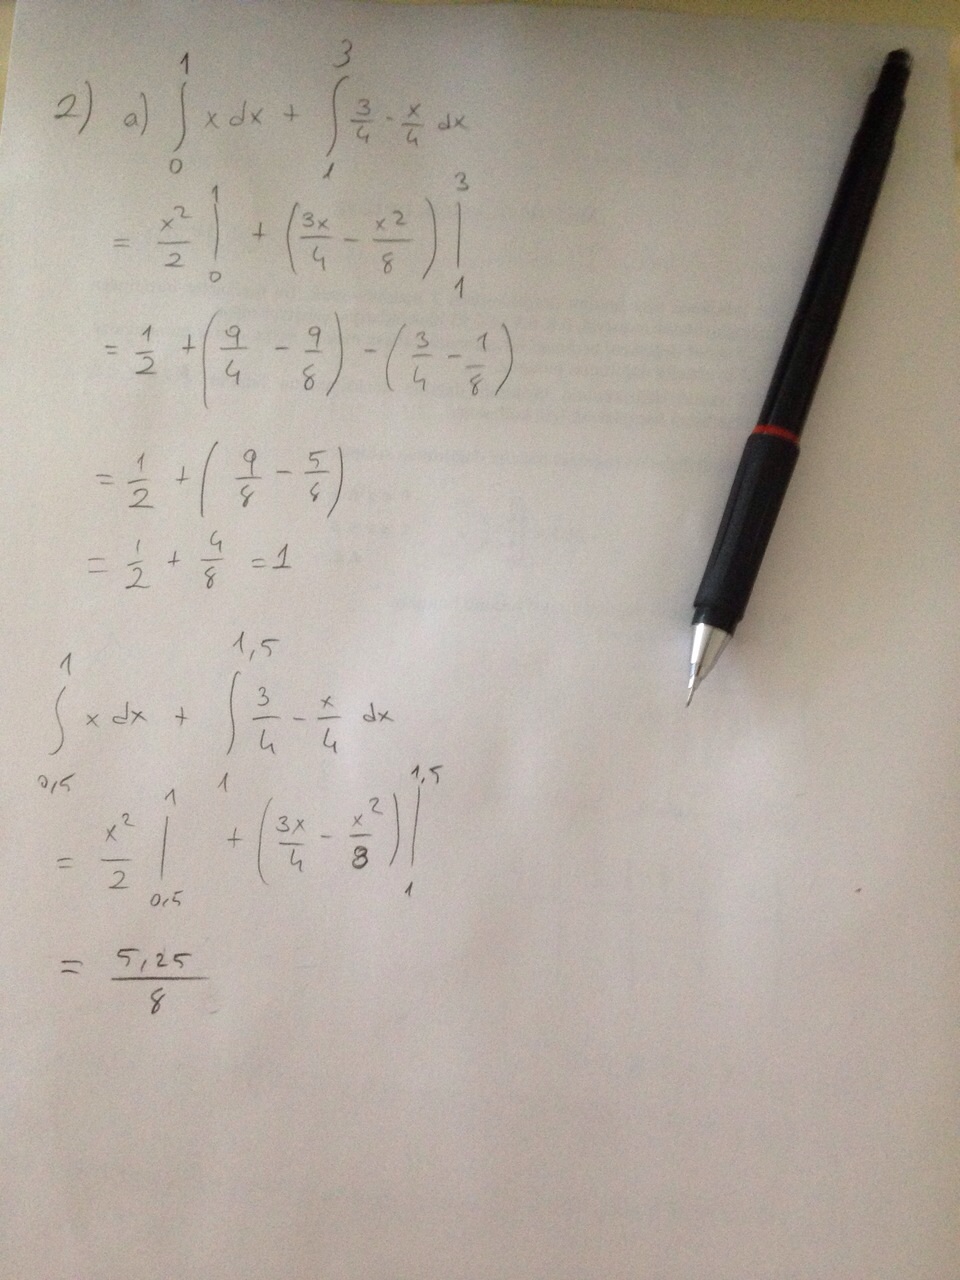 2) a) ∫₀¹ x dx + ∫₁³ 3/4 - x/4 dx
= x²/2 |₀¹ + (3x/4 - x²/8) |₁³
= 1/2 + (9/4 - 9/8) - (3/4 - 1/8)
= 1/2 + (9/8 - 5/8)
= 1/2 + 4/8 = 1
∫₀,₅¹ x dx + ∫₁¹,⁵ 3/4 - x/4 dx
= x²/2 |₀,₅¹ + (3x/4 - x²/8) |₁¹,⁵
= 5,25/8